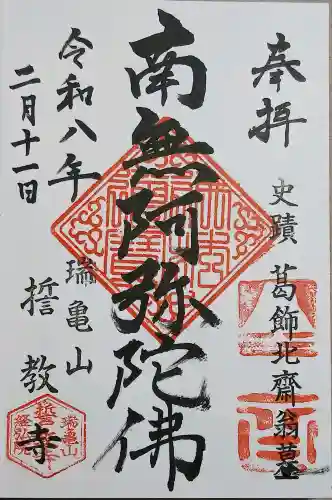 奉拝
史蹟 葛飾北齋翁墓
南無阿弥陀佛
瑞亀山
誓教寺
令和八年
二月十一日
瑞亀山